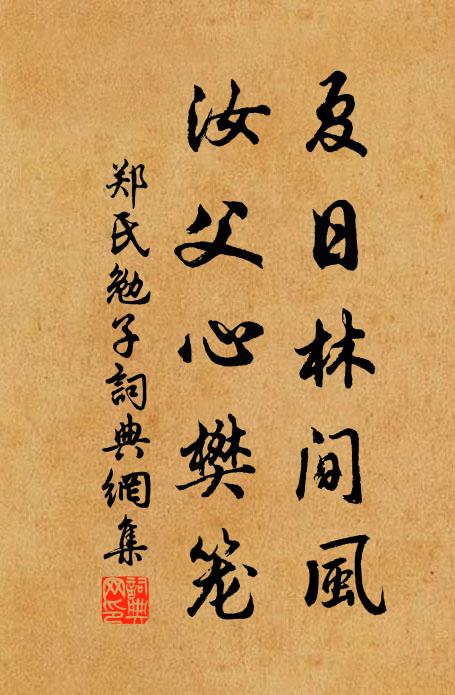 夏日林间風
汝父心樊笼
郑氏勉子詞典網集
詞典网印